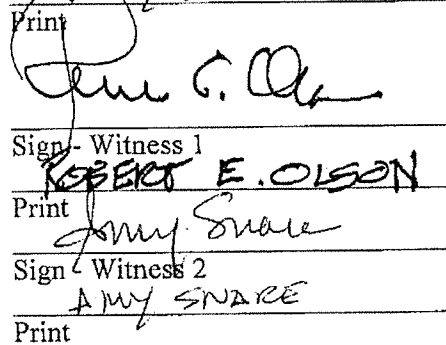 Print
Sign - Witness 1
ROBERT E. OLSON
Print
Amy Snare
Sign - Witness 2
AMY SNARE
Print